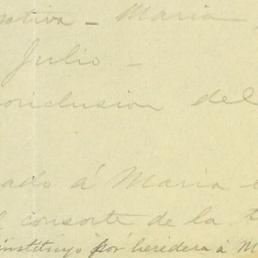 ctiva - Maria
Julio -
conclusion del
ado á Maria
consorte de la t
instituyo por heredera á M